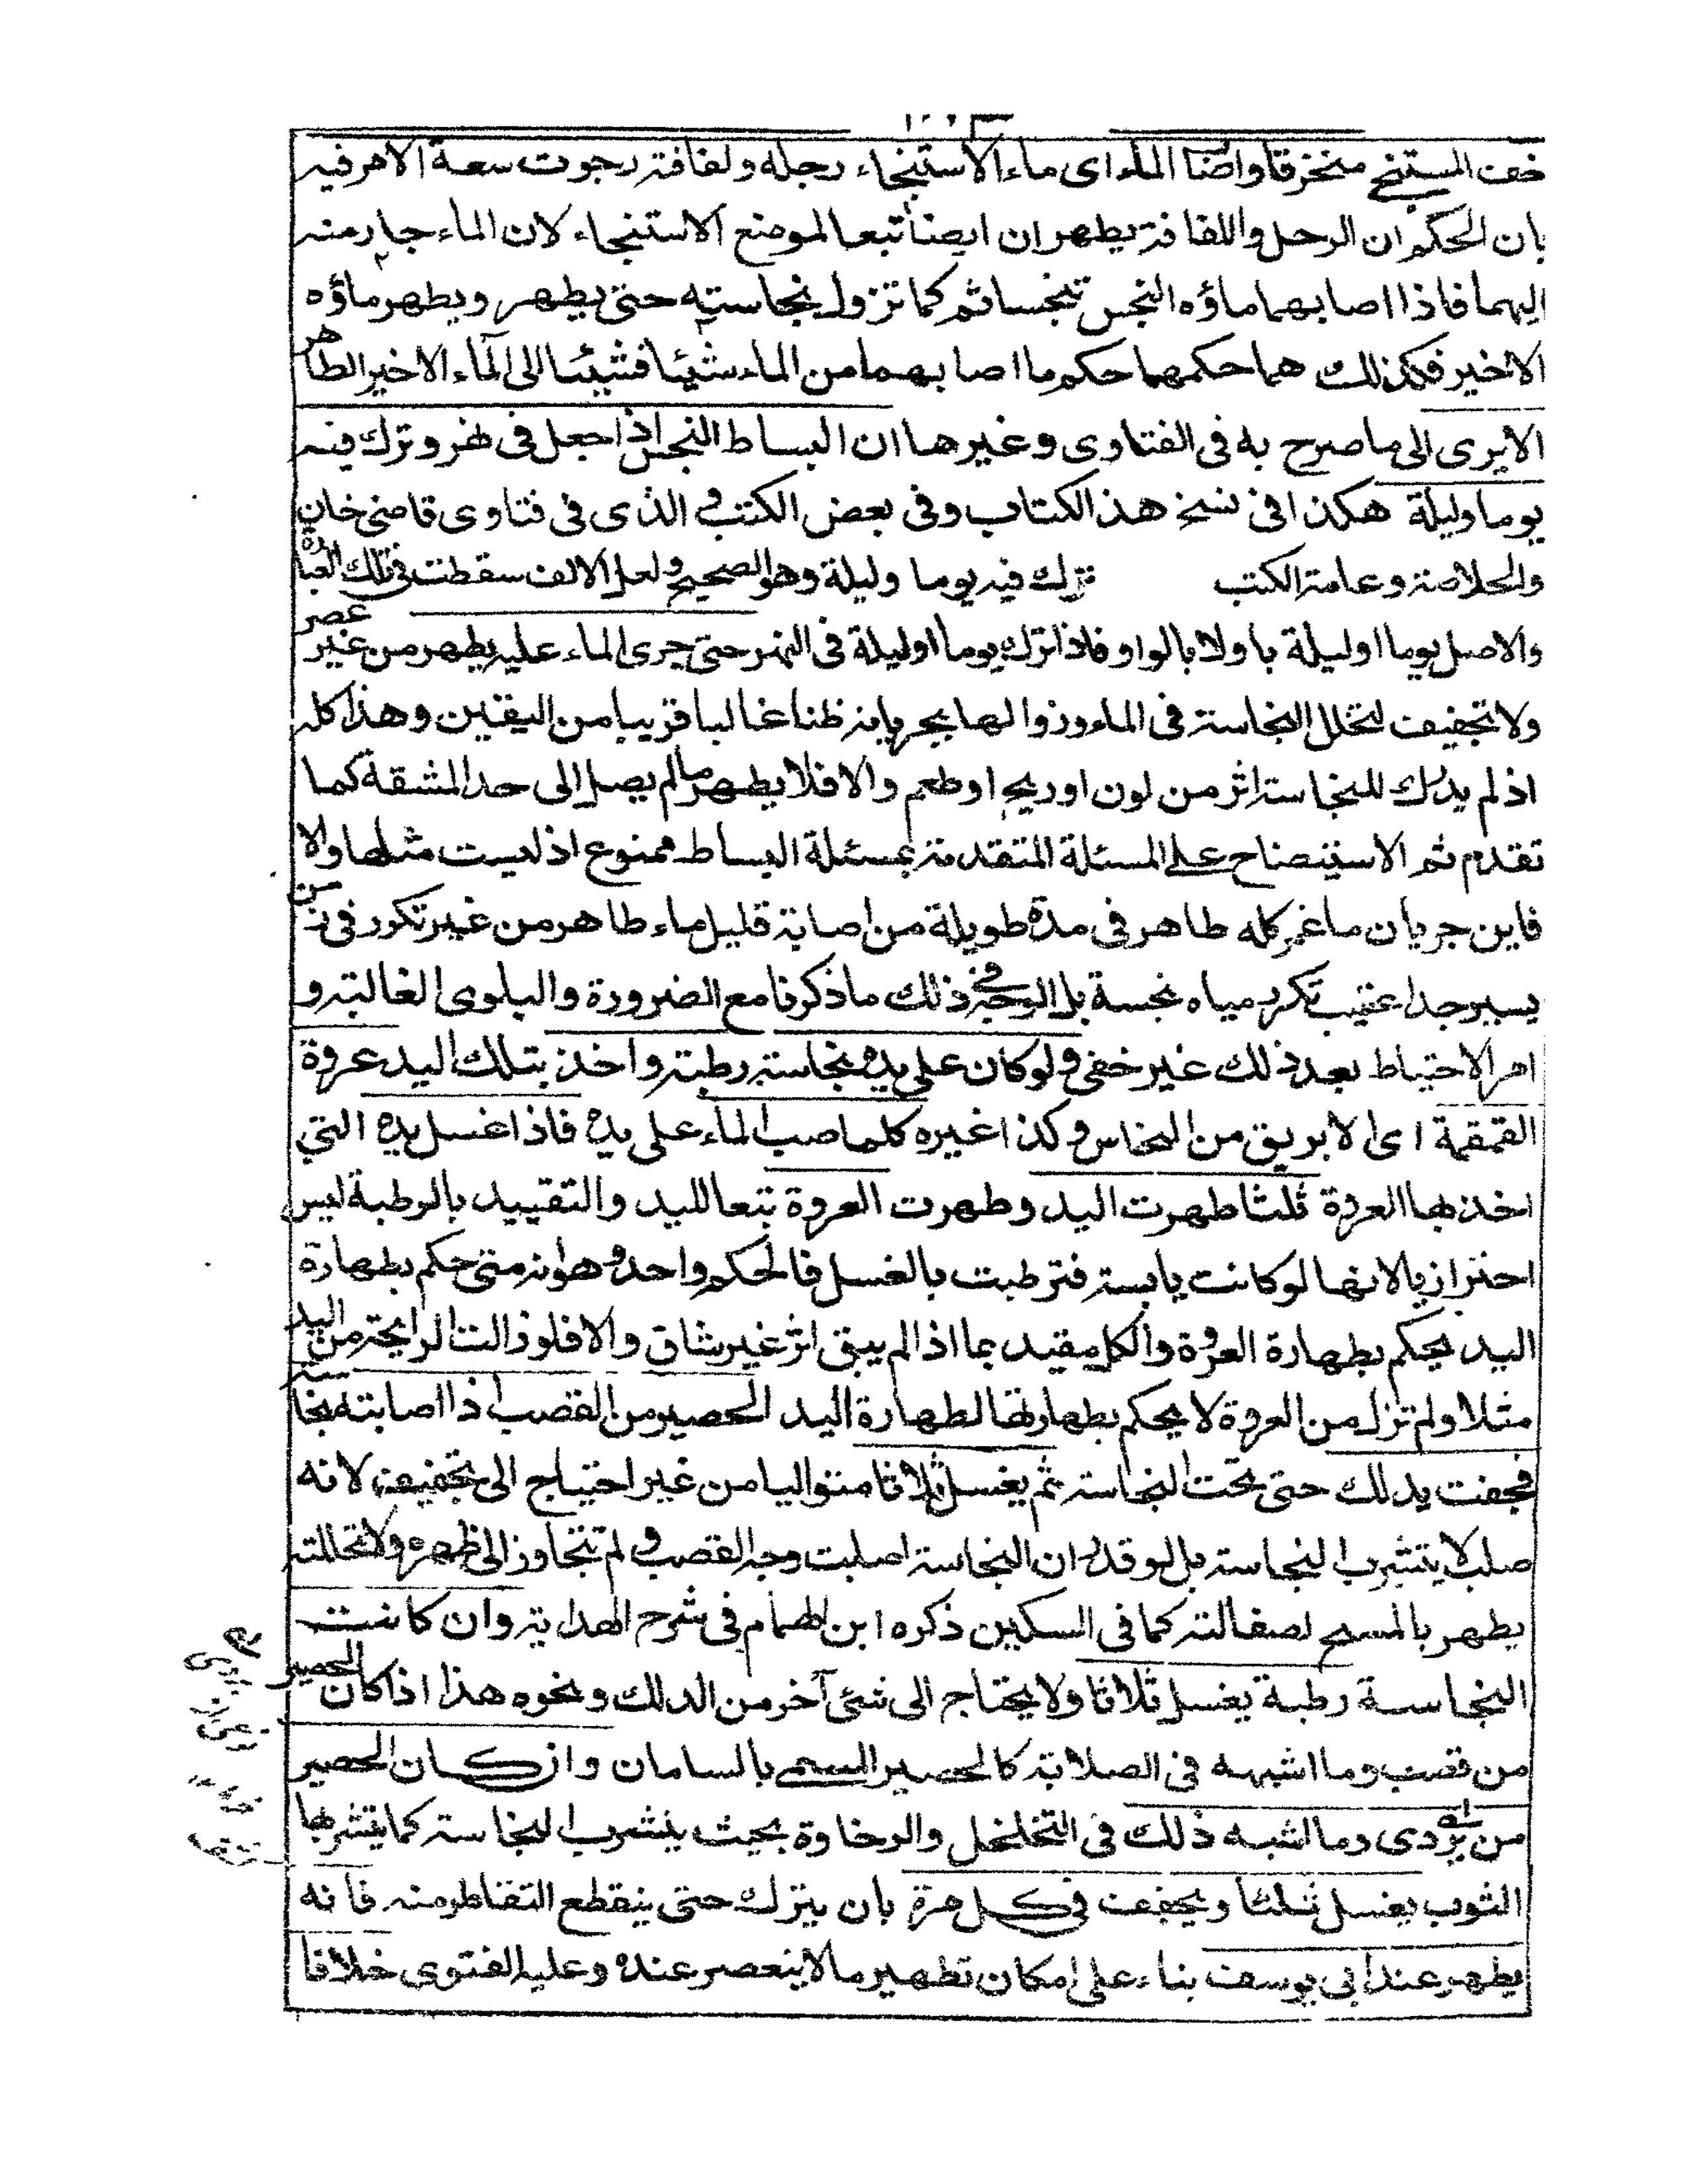 خف المستنجي منخرقا واصاب الماء اى ماء الاستنجاء رجله ولفافته رجوت سعة الامر فيه
بان الحكم ان الرجل واللفافة يطهران ايضا تبعا لموضع الاستنجاء لان الماء جار منه
اليهما فاذا اصابهما ماؤه النجس تنجسا ثم كما تزول نجاسته حتى يطهر ويطهر ماؤه
الاخير فكذلك هما حكمهما حكم ما اصابهما من الماء شيئا فشيئا الى الماء الاخير الطاهر
الا يرى الى ما صرح به فى الفتاوى وغيرها ان البساط النجس اذا جعل فى نهر وترك فيه
يوما وليلة هكذا فى نسخ هذا الكتاب وفى بعض الكتب و الذى فى فتاوى قاضى خان
والخلاصة وعامة الكتب ترك فيه يوما وليلة وهو الصحيح ولعل الالف سقطت فى تلك العبارة
والاصل يوما او ليلة باو لا بالواو فاذا ترك يوما او ليلة فى النهر حتى جرى الماء عليه يطهر من غير عصر
ولا تجفيف لتخلل النجاسة فى الماء وزوالها بجريانه ظنا غالبا قريبا من اليقين وهذا كله
اذ لم يدرك للنجاسة اثر من لون او ريح او طعم والا فلا يطهر ما لم يصل الى حد المشقة كما
تقدم ثم الاستيضاح على المسئلة المتقدمة بمسئلة البساط ممنوع اذ ليست مثلها والا
فاين جريان ما غمر كله طاهر فى مدة طويلة من اصابة قليل ماء طاهر من غير تكرر فى زمن
يسير جدا عقيب تكرر مياه نجسة بل الوجه فى ذلك ما ذكرنا مع الضرورة والبلوى الغالبة و
امر الاحتياط بعد ذلك غير خفى ولو كان على يده نجاسة رطبة واخذ بتلك اليد عروة
القمقمة اى الابريق من النحاس وكذا غيره كلما صب الماء على يده فاذا غسل يده التي
اخذ بها العروة ثلثا طهرت اليد وطهرت العروة تبعا لليد والتقييد بالرطبة ليس
احترازيا لانها لو كانت يابسة فترطبت بالغسل فالحكم واحد وهو انه متى حكم بطهارة
اليد يحكم بطهارة العروة والكل مقيد بما اذا لم يبق اثر غير شاق والا فلو زالت الرايحة من اليد
مثلا ولم تزل من العروة لا يحكم بطهارتها لطهارة اليد الحصير من القصب اذا اصابته نجاسة
فجفت يدلك حتى تحت النجاسة ثم يغسل ثلاثا متواليا من غير احتياج الى تجفيف لانه
صلب لا يتشرب النجاسة بل لو قدر ان النجاسة اصابت وجه القصب ولم تتجاوز الى ظهره ولا تخللته
يطهر بالمسح لصقالته كما فى السكين ذكره ابن الهمام فى شرح الهداية وان كانت
النجاسة رطبة يغسل ثلاثا ولا يحتاج الى شئ آخر من الدلك ونحوه هذا اذا كان الحصير
من قصب وما اشبهه فى الصلابة كالحصير المسمى بالسامان وان كان الحصير
من بردى وما اشبه ذلك فى التخلخل والرخاوة بحيث يتشرب النجاسة كما يتشربها
الثوب يغسل ثلثا ويجفف فى كل مرة بان يترك حتى ينقطع التقاطر منه فانه
يطهر عند ابى يوسف بناء على امكان تطهير ما لا ينعصر عنده وعليه الفتوى خلافا